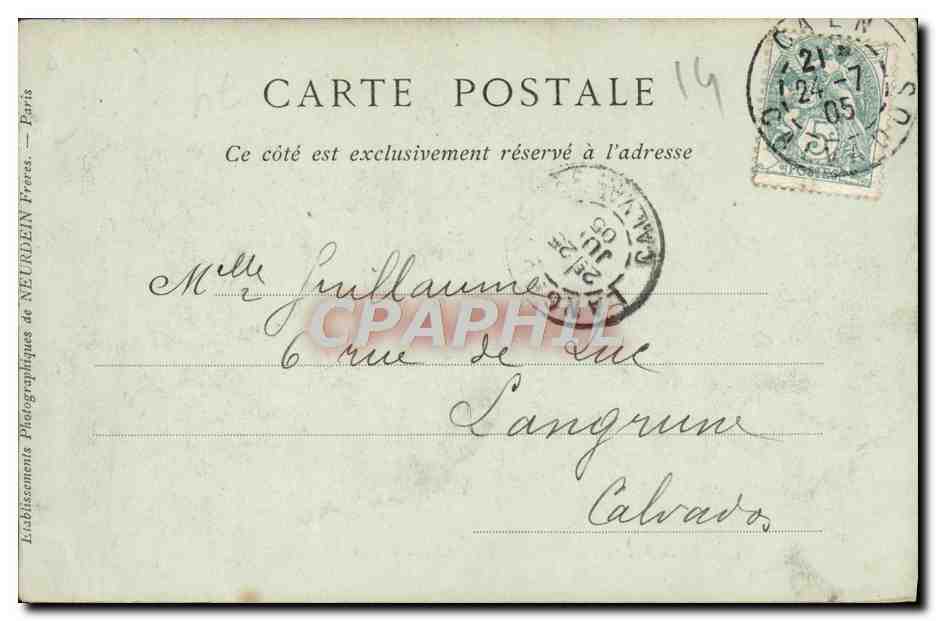 CARTE POSTALE
14
Ce côté est exclusivement réservé à l'adresse
CAEN
21
24 -7
05
CALVADOS
5c
POSTES
CALVADOS
25
JU
05
Mlle Guillaume
CPAPHIL
6 rue de Luc
Langrune
Calvados
Etablissements Photographiques de NEURDEIN Frères. — Paris